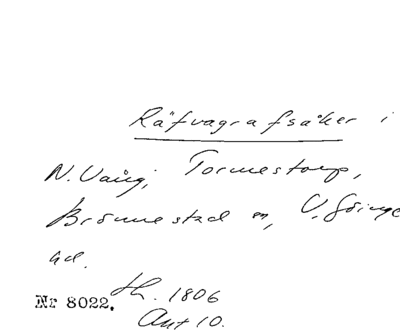 Räfvagrafsåker i
N. Vång, Tormestorp,
Brönnestad m, V. Göinge
hd.
th. 1806
Nr 8022.
Ant 10.